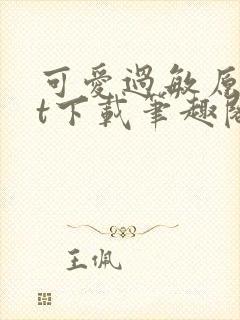 可愛過敏原
t下載筆趣閣
王佩